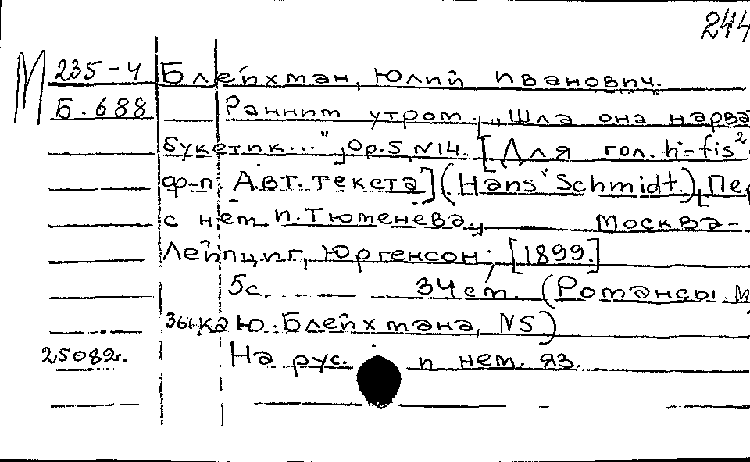 244
М 235-4 Блейхман, Юлий Иванович.
Б. 688 Ранним утром. „Шла она нарва
букетик...", Ор. 5, N14. [Для гол. h-fis²
ф-п. Авт. текста] (Hans Schmidt.), Пер
с нем. И. Тюменева, Москва-
Лейпциг, Юргенсон, [1899.]
5с. 34см. (Романсы. М
зыка Ю. Блейхмана, N5)
25082. На рус. и нем. яз.